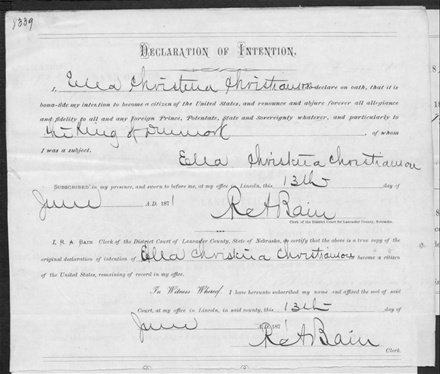 8339
DECLARATION OF INTENTION.
I, Ella Christina Christianson declare on oath, that it is
bona-fide my intention to become a citizen of the United States, and renounce and abjure forever all allegiance
and fidelity to all and any foreign Prince, Potentate, State and Sovereignty whatever, and particularly to
the King of Denmark of whom
I was a subject.
Ella Christina Christianson
SUBSCRIBED in my presence, and sworn to before me, at my office in Lincoln, this 13th day of
June A.D. 1871
R A Bain
Clerk of the District Court for Lancaster County, Nebraska.
I, R. A BAIN Clerk of the District Court of Lancaster County, State of Nebraska, do certify that the above is a true copy of the
original declaration of intention of Ella Christina Christianson become a citizen
of the United States, remaining of record in my office.
In Witness Whereof, I have hereunto subscribed my name and affixed the seal of said
Court, at my office in Lincoln, in said county, this 13th day of
June A.D. 187
R A Bain
Clerk.